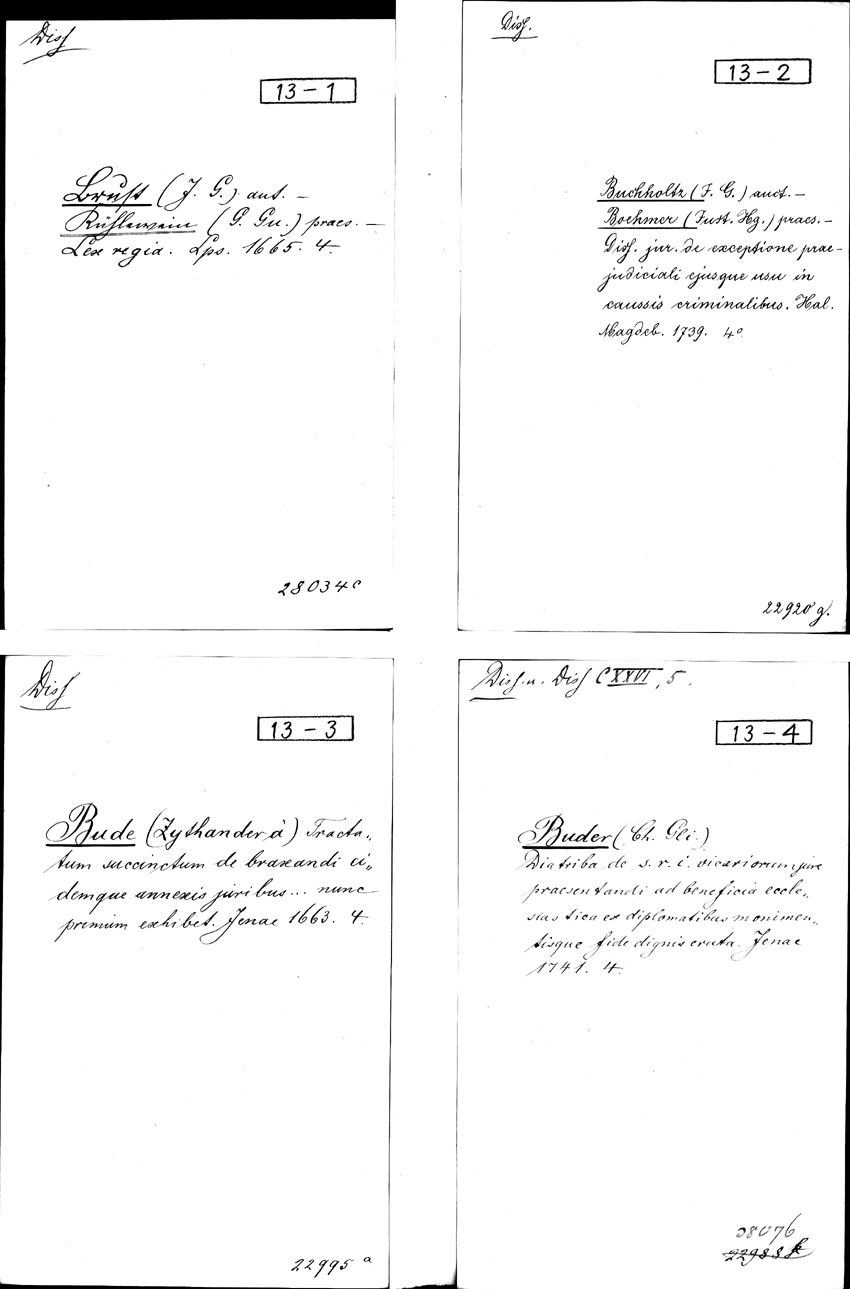 Diss
13-1
Brust (J. G.) aut. —
Rühlewein (G. Gu.) praes. —
Lex regia. Lps. 1665. 4.
28034c
Diss.
13-2
Buchholtz (F. G.) auct. —
Boehmer (Just. Hg.) praes. —
Diss. jur. de exceptione prae-
judiciali ejusque usu in
caussis criminalibus. Hal.
Magdeb. 1739. 4o
22920 g.
Diss
13-3
Bude (Zythander à) Tracta„
tum succinctum de braxandi ei„
demque annexis juribus... nunc
primum exhibet. Jenae 1663. 4.
22995 a
Diss. u. Diss CXXVI, 5.
13-4
Buder (Ch. Gli.)
Diatriba de s. r. i. vicariorum jure
praesentandi ad beneficia eccle„
siastica ex diplomatibus monimen„
tisque fide dignis eruta. Jenae
1741. 4.
28076
22988